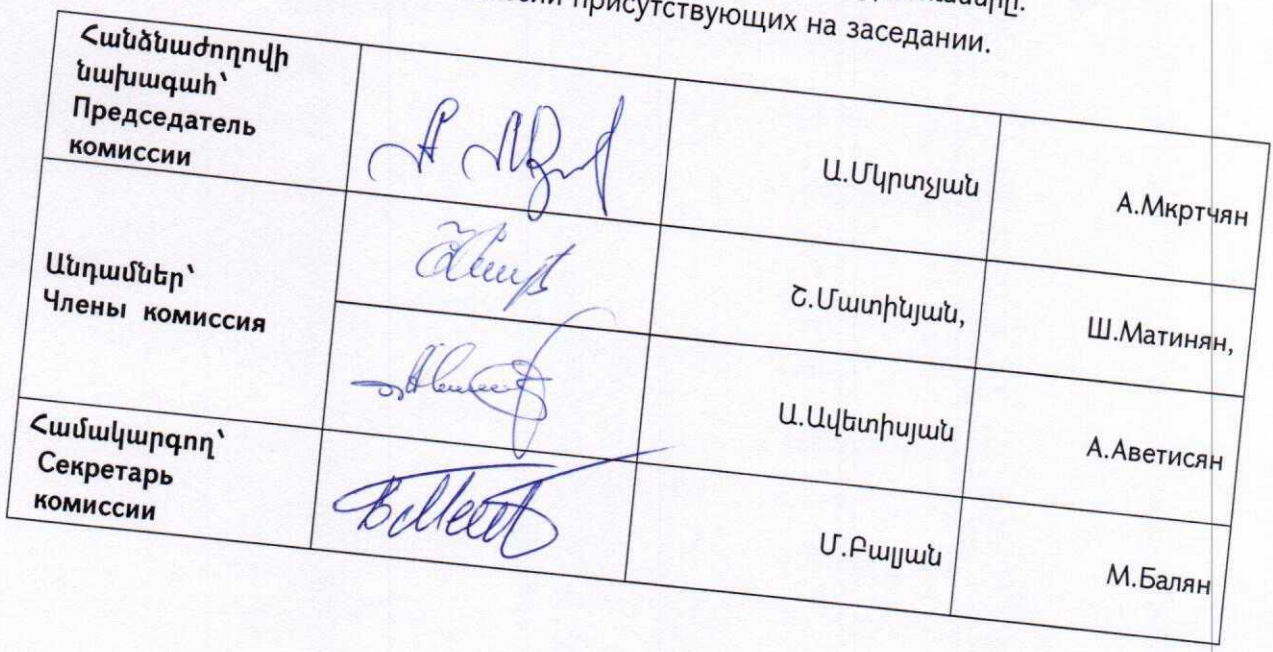 присутствующих на заседании.
Հանձնաժողովի
նախագահ՝
Председатель
комиссии
Ա.Մկրտչյան
А.Мкртчян
Անդամներ՝
Члены комиссия
Շ.Մատինյան,
Ш.Матинян,
Ա.Ավետիսյան
А.Аветисян
Համակարգող՝
Секретарь
комиссии
Մ.Բալյան
М.Балян